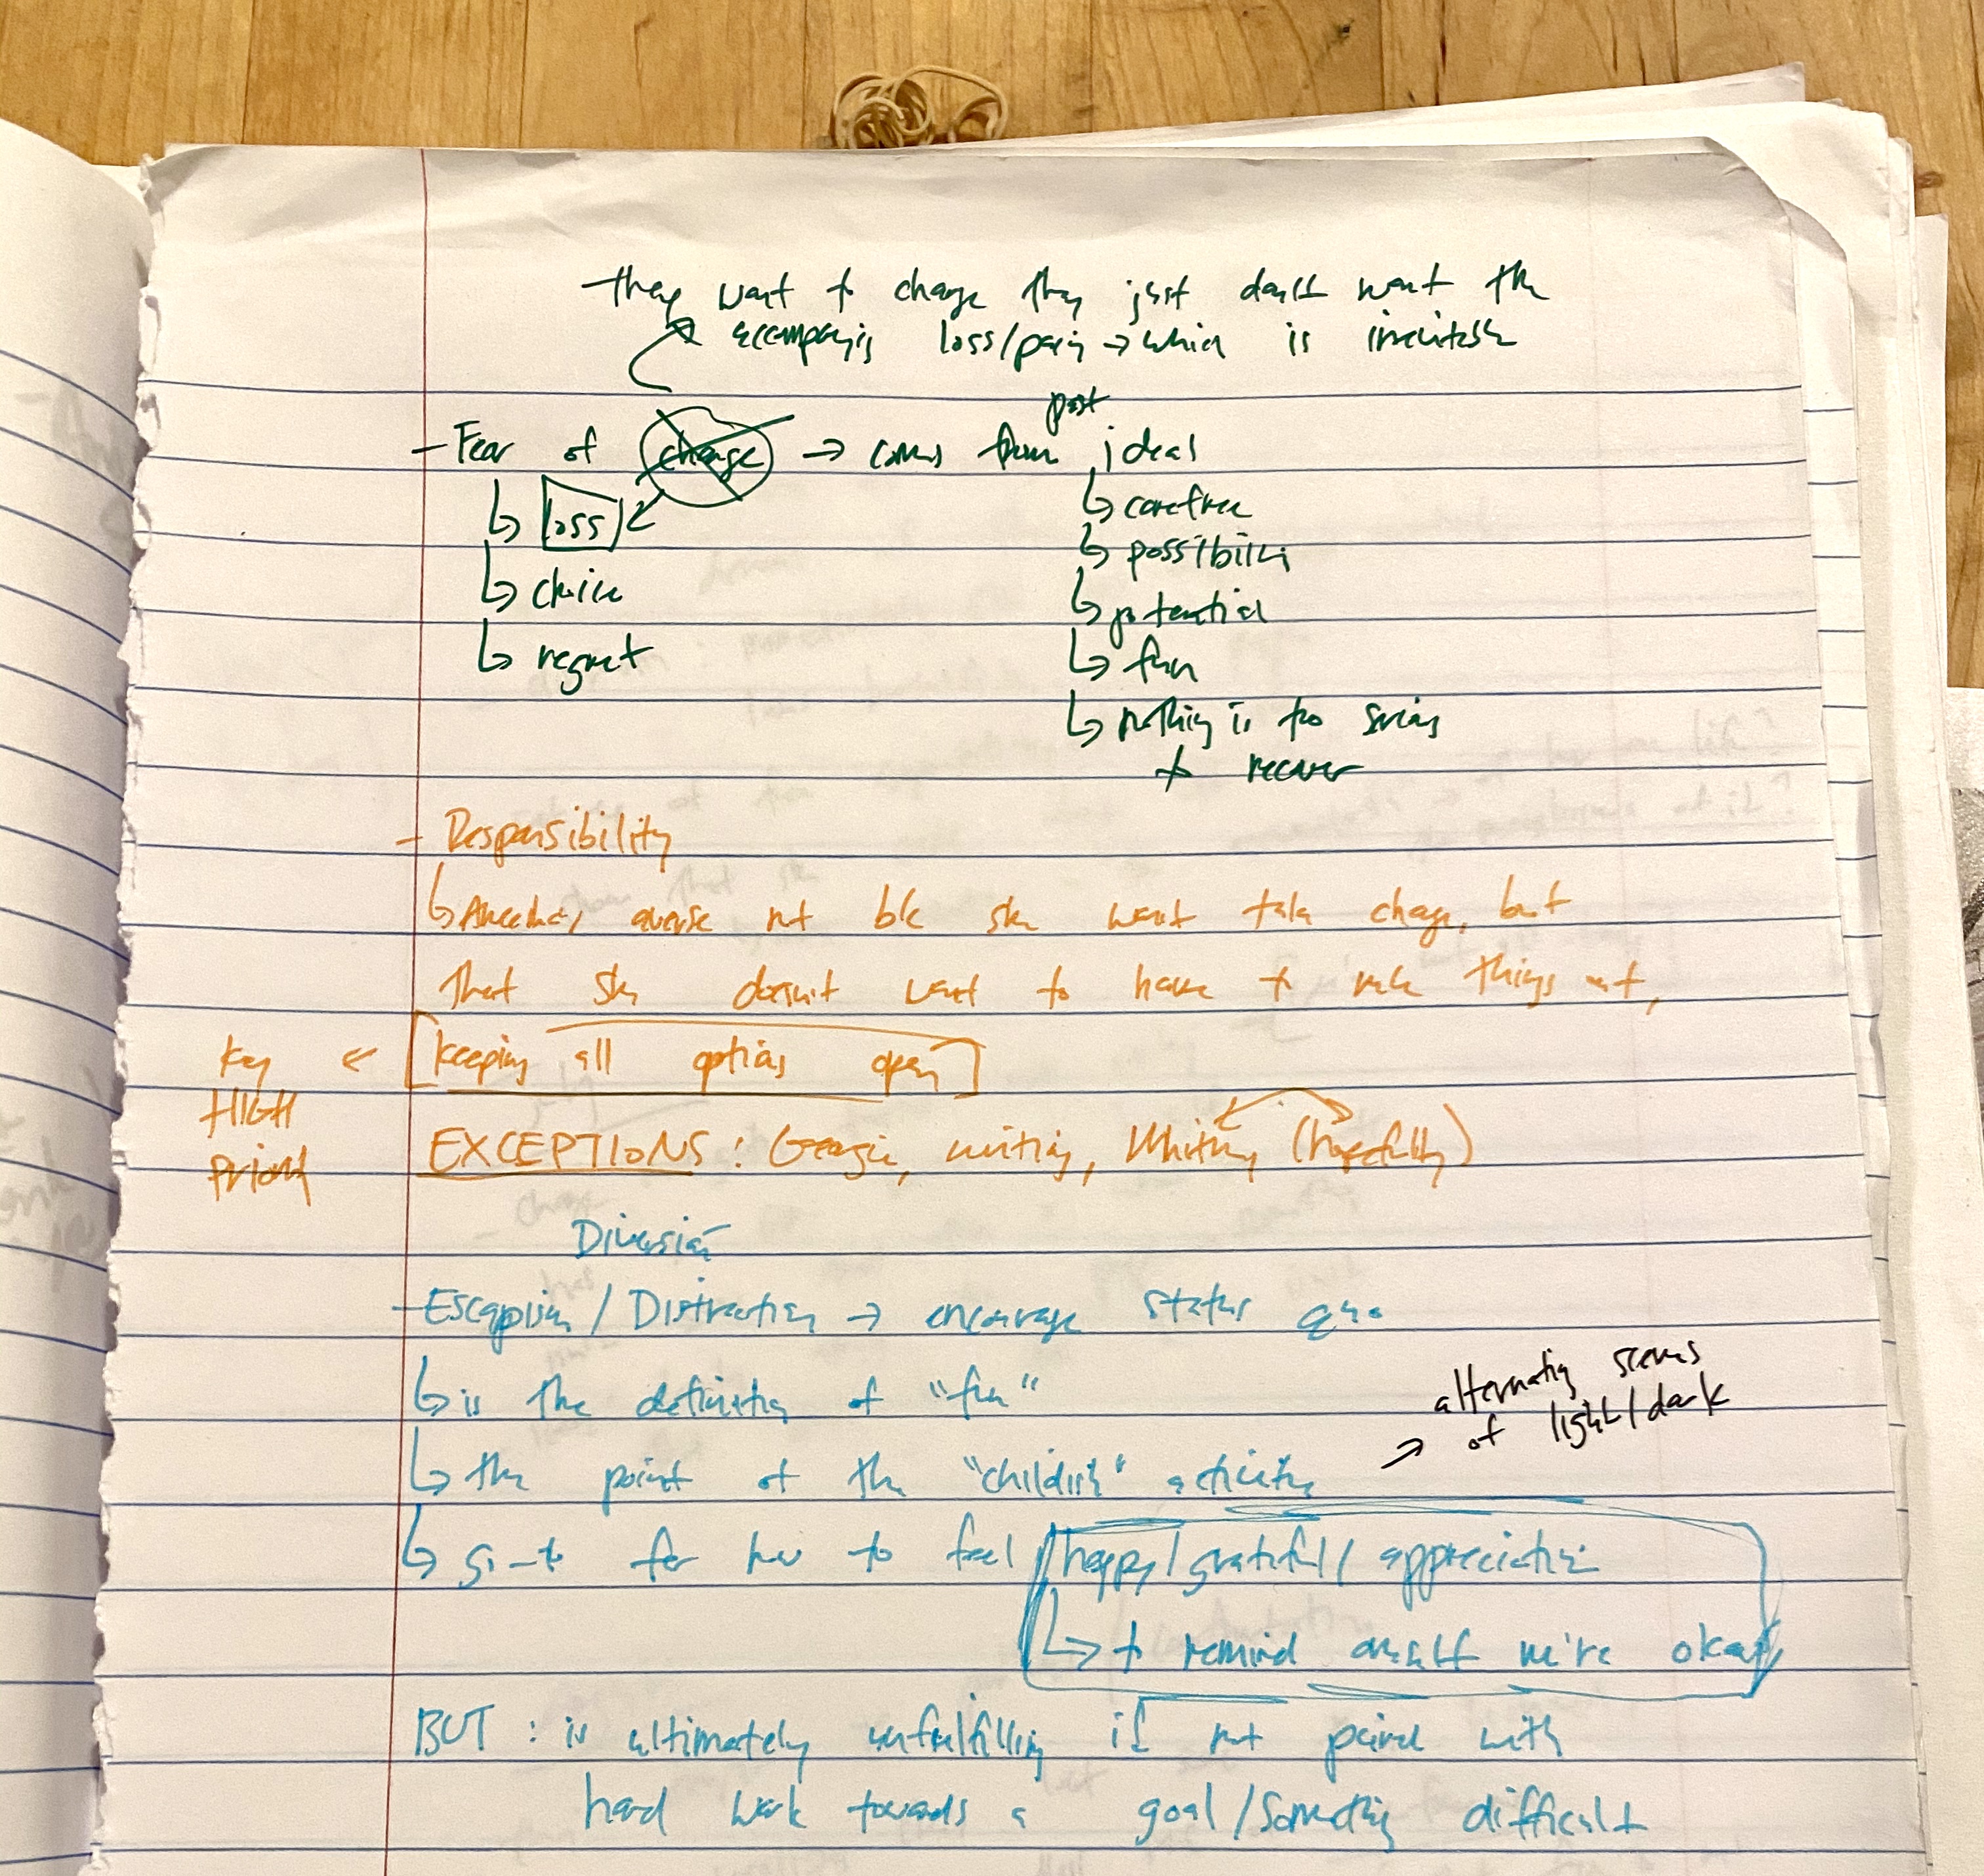 they want to change they just don't want the
accompanying loss/pain → which is inevitable
past
- Fear of change → comes from ideal
↳ loss
↳ choice
↳ regret
↳ carefree
↳ possibility
↳ potential
↳ fun
↳ nothing is too serious
to recover
- Responsibility
↳ averse not b/c she won't take charge, but
that she doesn't want to have to rule things out,
[keeping all options open]
key ←
HIGH
priority
EXCEPTIONS: Georgie, writing, Whitney (hopefully)
Diversion
- Escapism / Distraction → encourage status quo
↳ is the definition of "fun"
↳ the point of the "childish" activities
→ alternating scenes
of light/dark
↳ for her to feel happy/grateful/appreciative
↳ to remind oneself we're okay
BUT: is ultimately unfulfilling if not paired with
hard work towards a goal/something difficult